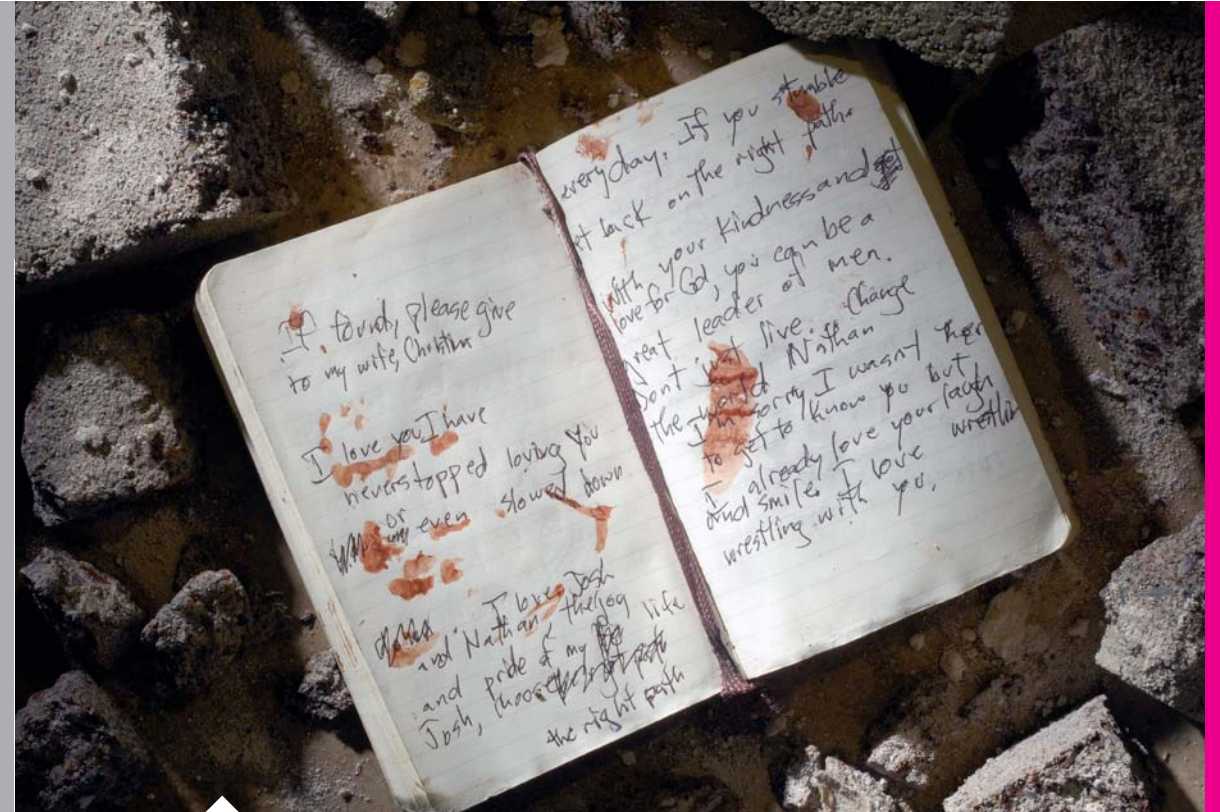 If found, please give
to my wife, Christina
I love you I have
never stopped loving you
or
even slowed down
I love Josh
and Nathan the joy
and pride of my life
Josh, choose
the right path
every day. If you stumble
get back on the right path.
With your kindness and
love for God, you can be a
great leader of men.
Dont just live. Change
the world Nathan
I'm sorry I wasnt there
to get to know you but
I already love your laugh
and smile. I love wrestlin
wrestling with you.